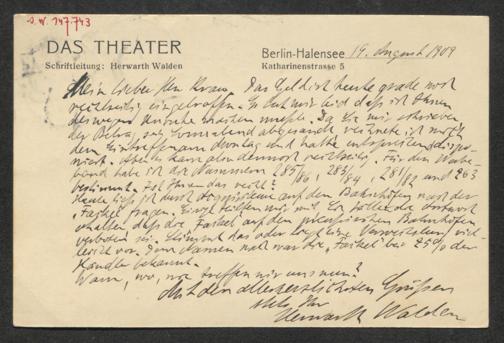 J. N. 147.743
DAS THEATER
Schriftleitung: Herwarth Walden
Berlin-Halensee 19. August 1909
Katharinenstrasse 5
Mein lieber Herr Kraus. Das Geld ist heute grade noch
rechtzeitig eingetroffen. Es tut mir leid dass ich Ihnen
deswegen machen musste. Da Sie mir schrieben
der Betrag sei Sonnabend abgesandt rechnete ich mit
dem Eintreffen am Montag und hatte entsprechend dispo-
niert. Aber es kam rechtzeitig. Für den
band habe ich die Nummern 285/86, 283/84, 281/82 und 263
bestimmt. Ist Ihnen das recht?
Heute ließ ich durch auf den Bahnhöfen nach der
Fackel fragen. mit. Es sollte die
erhalten dass die Fackel auf den preussischen Bahnhöfen
verboten sei. Stimmt das oder
Dem Namen nach war die Fackel bei 25% der
Händler bekannt.
Wann, wo, treffen wir uns nun?
Mit den allerherzlichsten Grüßen
stets Ihr
Herwarth Walden